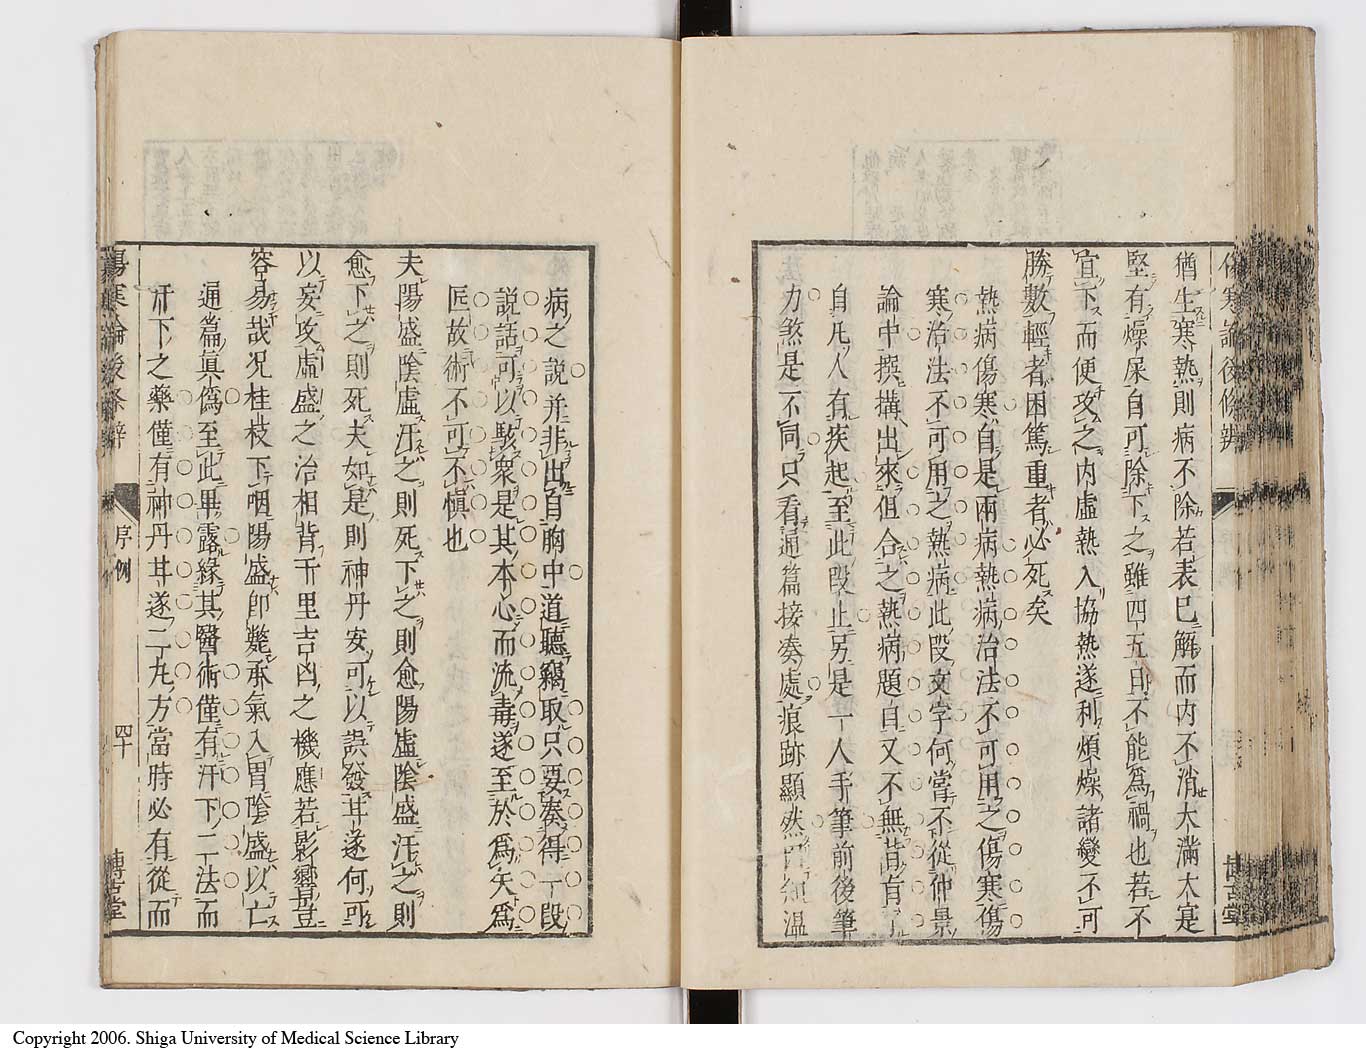 傷寒論後條辨
博古堂
猶生寒熱則病不除若表已解而内不消大滿大是
堅有燥屎自可除下之雖四五日不能爲禍也若不
宜下而便攻之内虛熱入協熱遂利煩燥諸變不可
勝數輕者困篤重者必死矣
熱病傷寒自是兩病熱病治法不可用之傷寒傷
寒治法不可用之熱病此段文字何嘗不從仲景
論中撰搆出來但合之熱病題目又不無背盲了
自凡人有疾起至此段止另是一人手筆前後筆
力煞是不同只看通篇接奏處痕跡顯然因知溫
病之說并非出自胸中道聽竊取只要奏得一段
說話可以駭衆是其本心而流毒遂至於爲矢爲
匠故術不可不慎也
夫陽盛陰虛汗之則死下之則愈陽虛陰盛汗之則
愈下之則死夫如是則神丹安可以誤發甘遂何可
以妄攻虛盛之治相背千里吉凶之機應若影響豈
容易哉况桂枝下咽陽盛即斃承氣入胃陰盛以亡
通篇眞僞至此畢露緣其醫術僅有汗下二法而
汗下之藥僅有神丹甘遂二丸方當時必有從而
傷寒論後條辨
序例
四十
博古堂
Copyright 2006. Shiga University of Medical Science Library